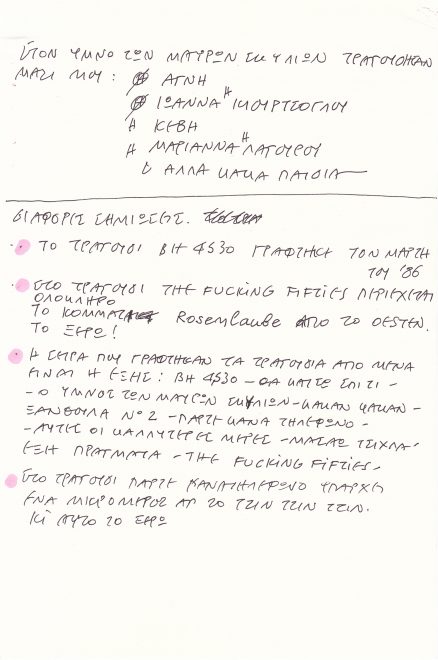 ΣΤΟΝ ΥΜΝΟ ΤΩΝ ΜΑΥΡΩΝ ΣΚΥΛΙΩΝ ΤΡΑΓΟΥΔΗΣΑΝ
ΜΑΖΙ ΜΟΥ: Η ΑΓΝΗ
Η ΙΩΑΝΝΑ Η ΚΙΟΥΡΤΣΟΓΛΟΥ
Η ΚΕΒΗ
Η ΜΑΡΙΑΝΝΑ Η ΛΑΓΟΥΡΟΥ
& ΑΛΛΑ ΚΑΚΑ ΠΑΙΔΙΑ
ΔΙΑΦΟΡΕΣ ΣΗΜΙΩΣΕΙΣ.
ΤΟ ΤΡΑΓΟΥΔΙ ΒΗ 4530 ΓΡΑΦΤΗΚΕ ΤΟΝ ΜΑΡΤΗ
ΤΟΥ '86
ΣΤΟ ΤΡΑΓΟΥΔΙ THE FUCKING FIFTIES ΠΕΡΙΕΧΕΤΑΙ
ΟΛΟΚΛΗΡΟ
ΤΟ ΚΟΜΜΑΤΙ Rosenlaube ΑΠΟ ΤΟ OESTEN.
ΤΟ ΞΕΡΩ!
Η ΣΕΙΡΑ ΠΟΥ ΓΡΑΦΤΗΚΑΝ ΤΑ ΤΡΑΓΟΥΔΙΑ ΑΠΟ ΜΕΝΑ
ΕΙΝΑΙ Η ΕΞΗΣ: ΒΗ 4530 - ΘΑ ΚΑΤΣΩ ΣΠΙΤΙ -
- Ο ΥΜΝΟΣ ΤΩΝ ΜΑΥΡΩΝ ΣΚΥΛΙΩΝ - ΚΑΚΑΝ ΚΑΚΑΝ -
ΞΑΝΘΟΥΛΑ Νο 2 - ΠΑΡΤΗ ΚΑΝΑ ΤΗΛΕΦΩΝΟ -
- ΑΥΤΕΣ ΟΙ ΚΑΛΛΥΤΕΡΕΣ ΜΕΡΕΣ - ΜΑΣΑΩ ΤΣΙΧΛΑ -
ΕΞΗ ΠΡΑΓΜΑΤΑ - THE FUCKING FIFTIES -
ΣΤΟ ΤΡΑΓΟΥΔΙ ΠΑΡΤΗ ΚΑΝΑ ΤΗΛΕΦΩΝΟ ΥΠΑΡΧΕΙ
ΕΝΑ ΜΙΚΡΟ ΜΕΡΟΣ ΑΠ ΤΟ ΤΖΙΝ ΤΖΙΝ ΤΖΙΝ.
ΚΙ ΑΥΤΟ ΤΟ ΞΕΡΩ